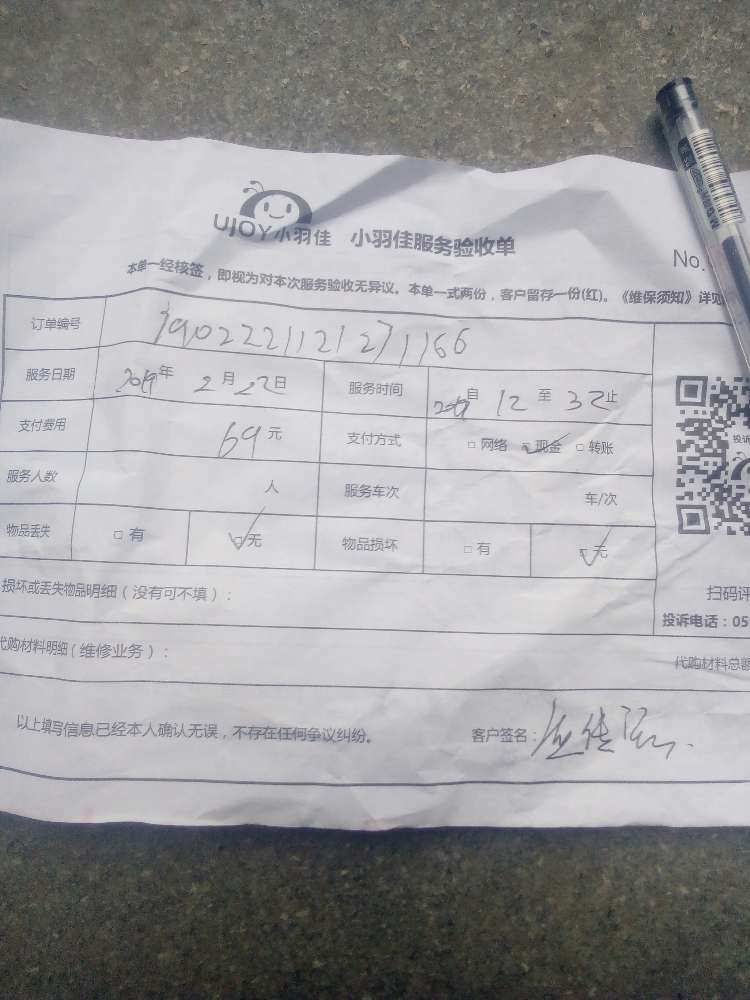 UJOY小羽佳 小羽佳服务验收单
No.
本单一经核签，即视为对本次服务验收无异议。本单一式两份，客户留存一份(红)。《维保须知》详见
订单编号 1902221121271166
服务日期 2019年 2月22日 服务时间 自12至32止
支付费用 69元 支付方式 □网络 □现金 □转账
服务人数 人 服务车次 车/次
投诉
物品丢失 □有 □无 物品损坏 □有 □无
损坏或丢失物品明细（没有可不填）：
扫码评
投诉电话：05
代购材料明细（维修业务）：
代购材料总额
以上填写信息已经本人确认无误，不存在任何争议纠纷。 客户签名：